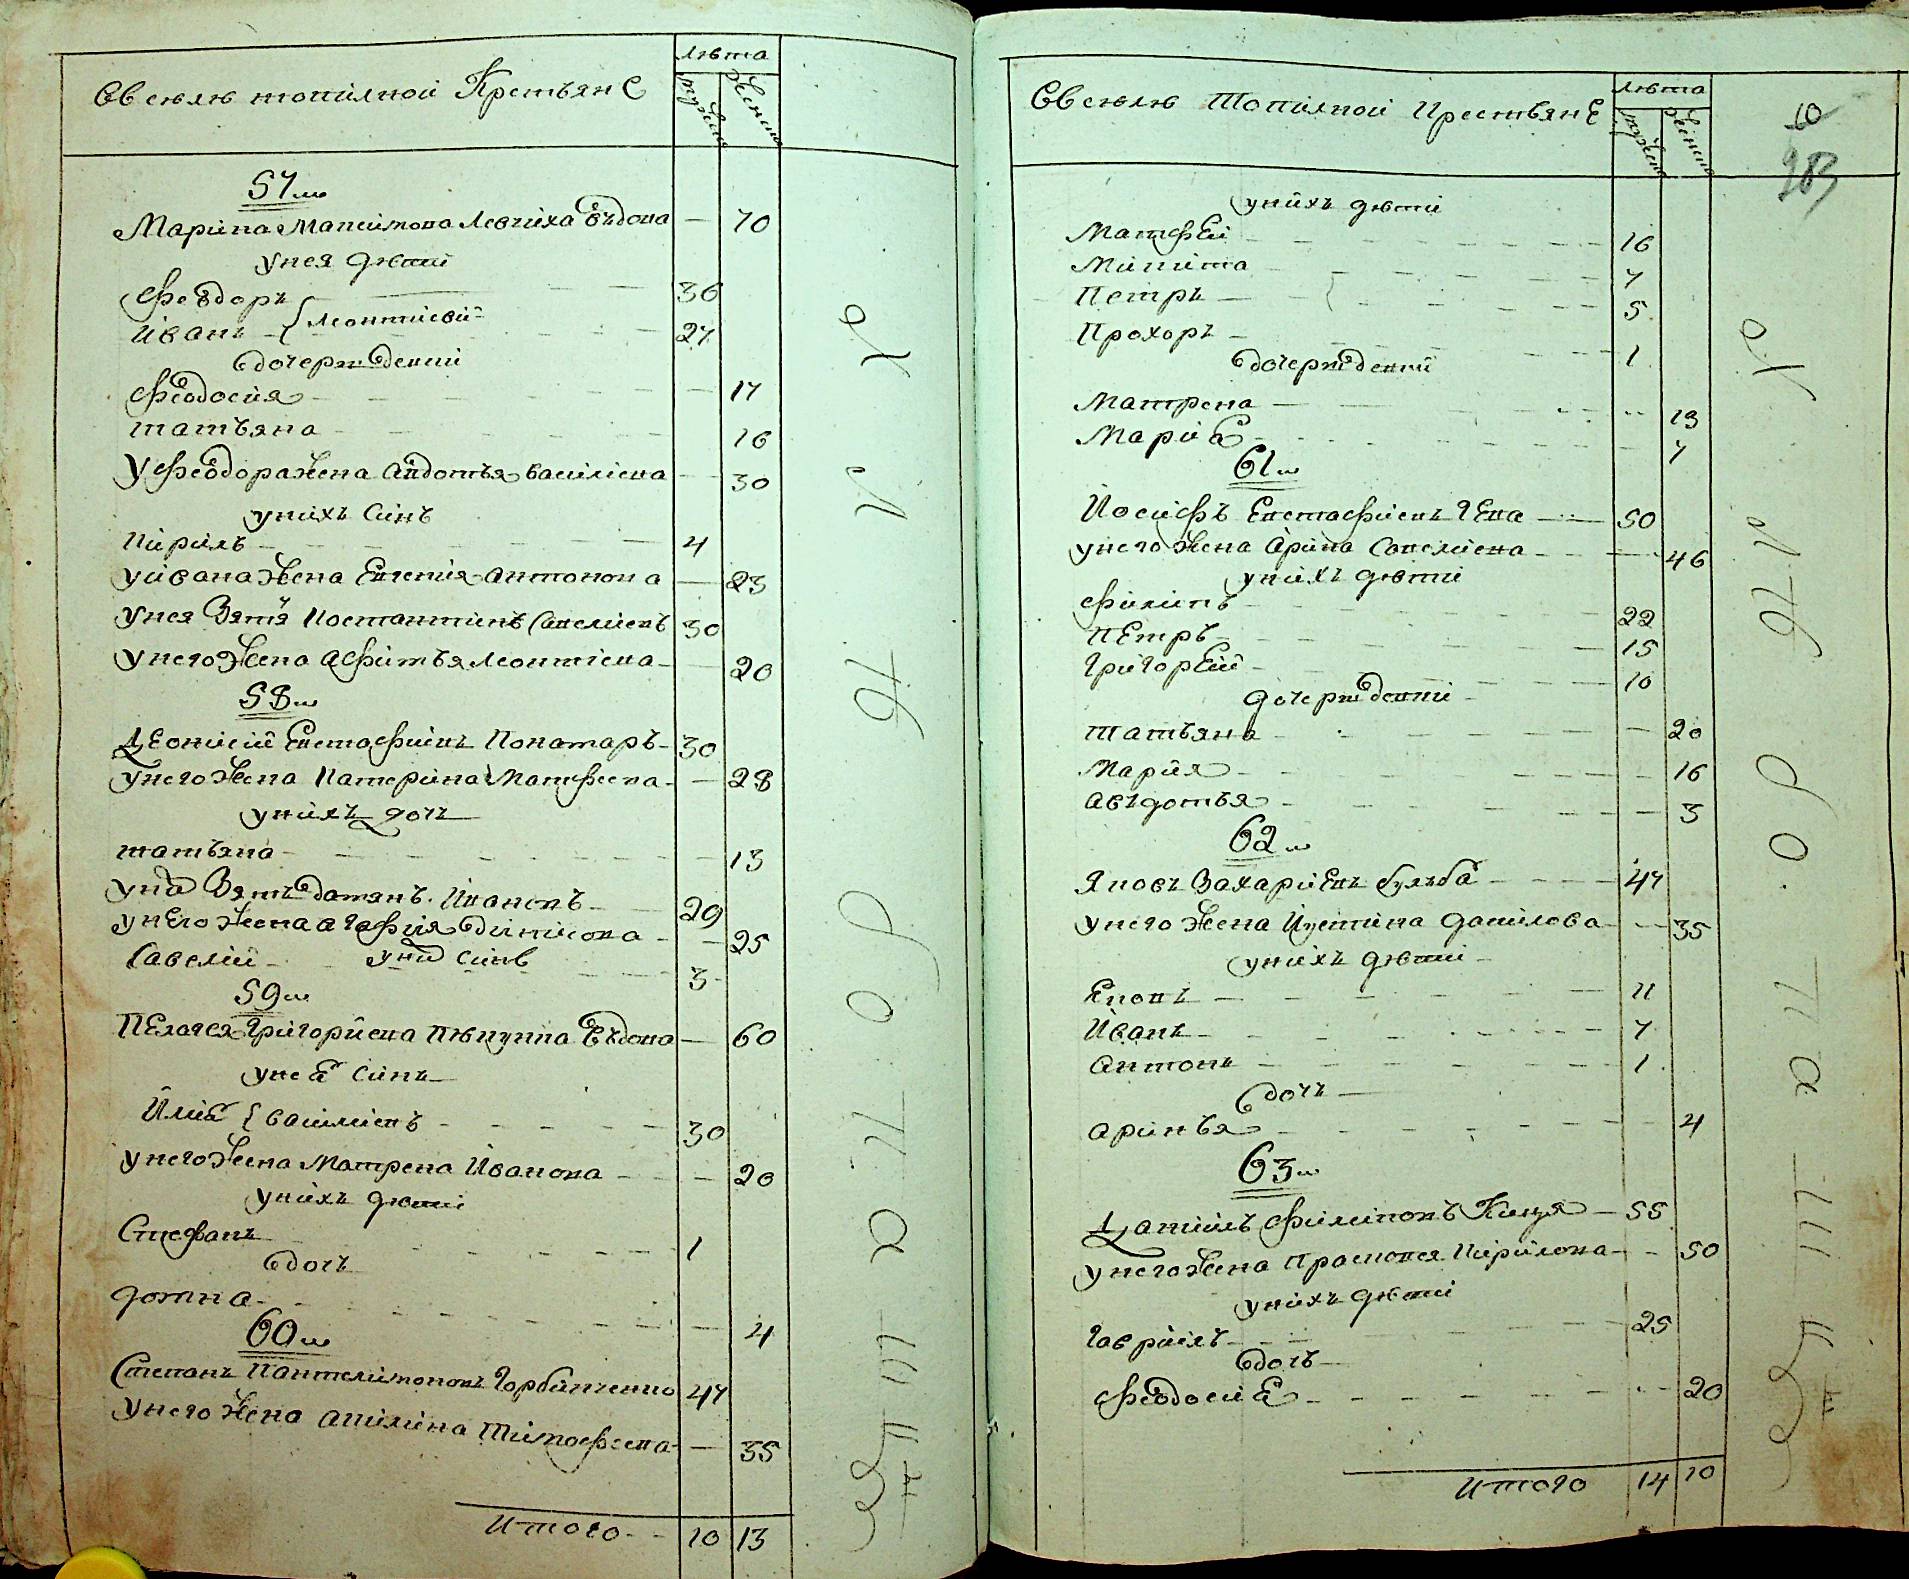 Въ селѣ Топилной Крестьяне
Лѣта
мужеска
женска
57м
Марина Максимова Левчиха въдова — 70
у нея дѣти
Феодоръ 36
Иванъ { Леонтиеви 27
дочери девки
Феодосия — 17
татьяна 16
У Феодора жена Авдотья василиева — 30
у нихъ синъ
Кирилъ 4
у ивана жена Евгения антонова — 23
у нея Зятя Костантинъ Савелиевъ 30
у него жена афимья леонтиева — 20
58м
Деонисий Евстафиевъ Понамаръ 30
у него жена Катерина Матфеева — 28
у нихъ дочъ
татьяна — 13
Зять дамянъ Ивановъ 29
у него жена агафия динисова — 25
Савелий синъ 3
59м
Пелагея Григориева въдова — 60
у нея синъ
Илия { василиевъ 30
у него жена Матрена Иванова — 20
у нихъ дѣти
Стефанъ 1
дочъ
домна — 4
60м
Степанъ Пантелимоновъ Горбанченко 47
у него жена акилина Тимофеева — 35
Итого 10 13
Въ селѣ Топилной Крестьяне
Лѣта
мужеска
женска
10
283
у нихъ дѣти
Матфей 16
Микита 7
Петръ 5
Прохоръ 1
дочери девки
Матрена 13
Мария 7
61м
Йосифъ Евстафиевъ 50
у него жена Арина Савелиева — 46
у нихъ дѣти
Филипъ 22
Петръ 15
Григорей 10
дочери девки
татьяна — 20
Мария — 16
авъдотья — 3
62м
Яковъ Захариевъ бульба 47
у него жена Иустина данилова — 35
у нихъ дѣти
Яковъ 11
Иванъ 7
антонъ 1
дочъ
аринья 4
63м
Данилъ Филиповъ Кица 55
у него жена Прасковя Кирилова — 50
у нихъ дѣти
гаврилъ 25
дочъ
Феодосия — 20
Итого 14 10